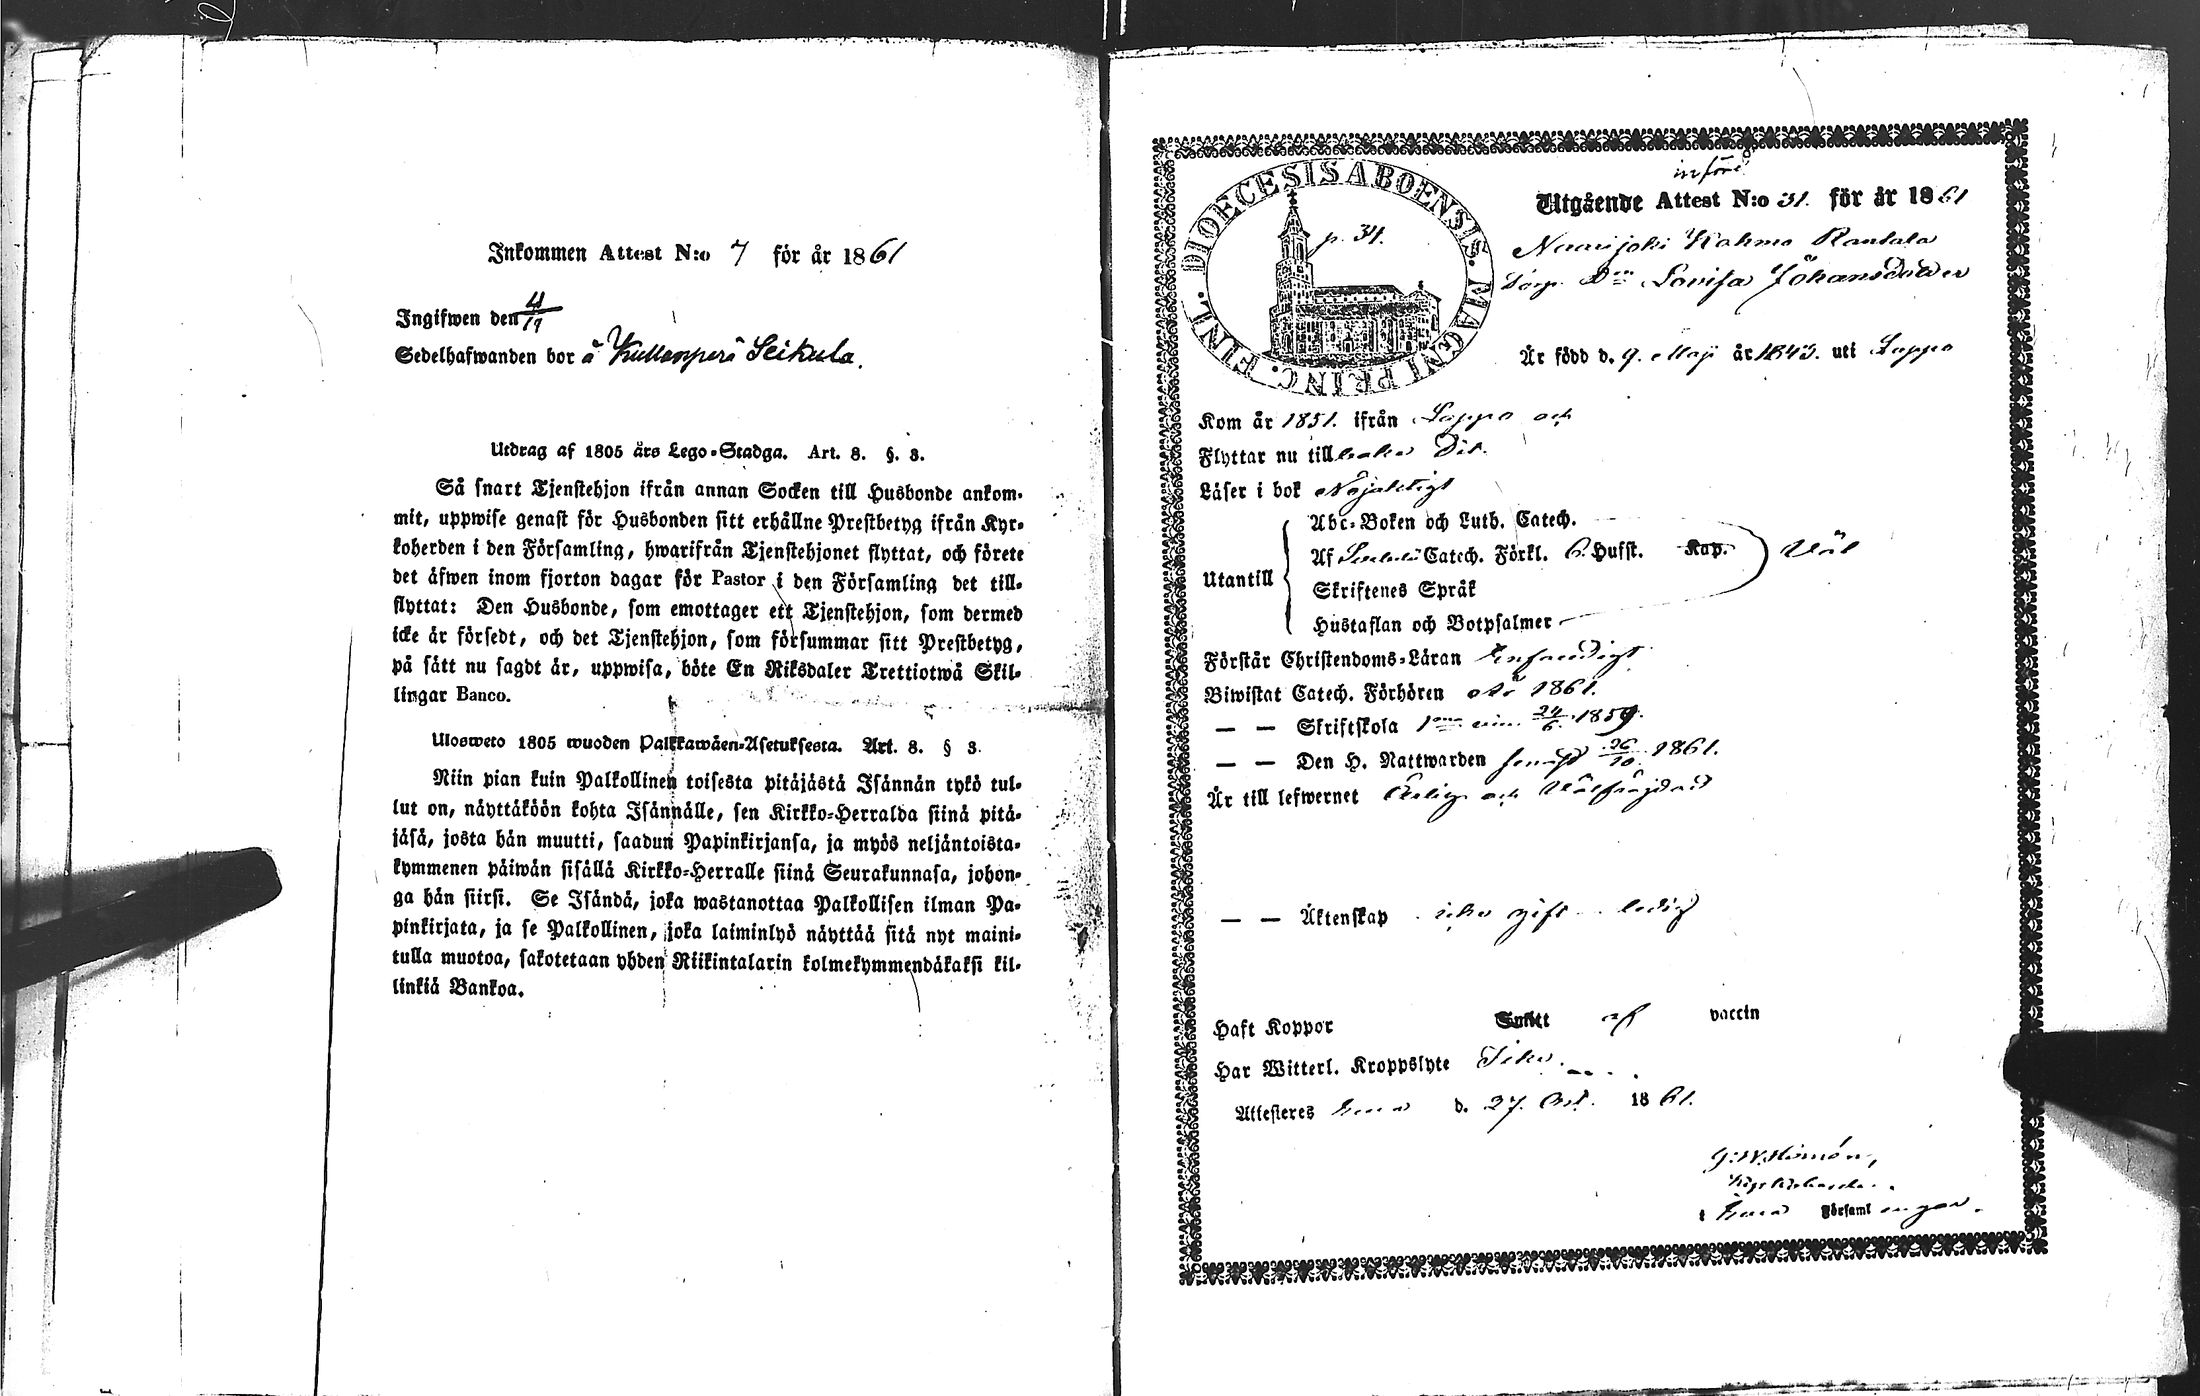 Inkommen Attest N:o 7 för år 1861
Ingifwen den 4/11
Sedelhafwanden bor å Kullanperä Seikula.
Utdrag af 1805 års Lego-Stadga. Art. 8. §. 3.
Så snart Tjenstehjon ifrån annan Socken till Husbonde ankom-
mit, uppwise genast för Husbonden sitt erhållne Prestbetyg ifrån Kyr-
koherden i den Församling, hwarifrån Tjenstehjonet flyttat, och förete
det äfwen inom fjorton dagar för Pastor i den Församling det till-
flyttat: Den Husbonde, som emottager ett Tjenstehjon, som dermed
icke är försedt, och det Tjenstehjon, som försummar sitt Prestbetyg,
på sätt nu sagdt är, uppwisa, böte En Riksdaler Trettiotwå Skil-
lingar Banco.
Ulosweto 1805 wuoden Palkkawäen-Asetuksesta. Art. 8. § 3.
Niin pian kuin Palkollinen toisesta pitäjästä Isännän tykö tul-
lut on, näyttäköön kohta Isännälle, sen Kirkko-Herralda siinä pitä-
jäsä, josta hän muutti, saadun Papinkirjansa, ja myös neljäntoista-
kymmenen päiwän sisällä Kirkko-Herralle siinä Seurakunnasa, johon-
ga hän siirsi. Se Isändä, joka wastanottaa Palkollisen ilman Pa-
pinkirjata, ja se Palkollinen, joka laiminlyö näyttää sitä nyt maini-
tulla muotoa, sakotetaan yhden Riikintalarin kolmekymmendäkaksi kil-
linkiä Bankoa.
införd
Utgående Attest N:o 31. för år 1861
DIOECESIS ABOENSIS. MAGNI PRINC. FINL.
p. 34.
Naarijoki Kahma Rantala
Torp. Drn Lovisa Johansdotter
Är född d. 9. Maji år 1843. uti Lappo
Kom år 1851. ifrån Lappo och
Flyttar nu tillbaka Dit.
Läser i bok Nöjaktigt
Utantill
Abc-Boken och Luth. Catech.
Af Catech. Förkl. 6. Hufst. Kap. Väl
Skriftenes Språk
Hustaflan och Botpsalmer
Förstår Christendoms-Läran Enfaldigt
Biwistat Catech. Förhören År 1861.
— — Skriftskola 24/6 1859.
— — Den H. Nattwarden senast 26/10 1861.
Är till lefwernet Ärlig och Välfräjdad
— — Äktenskap icke gift ledig
Haft Koppor Smitt af vaccin
Har Witterl. Kroppslyte Icke
Attesteres Eura d. 27. Oct. 1861.
i Eura Församlingar.